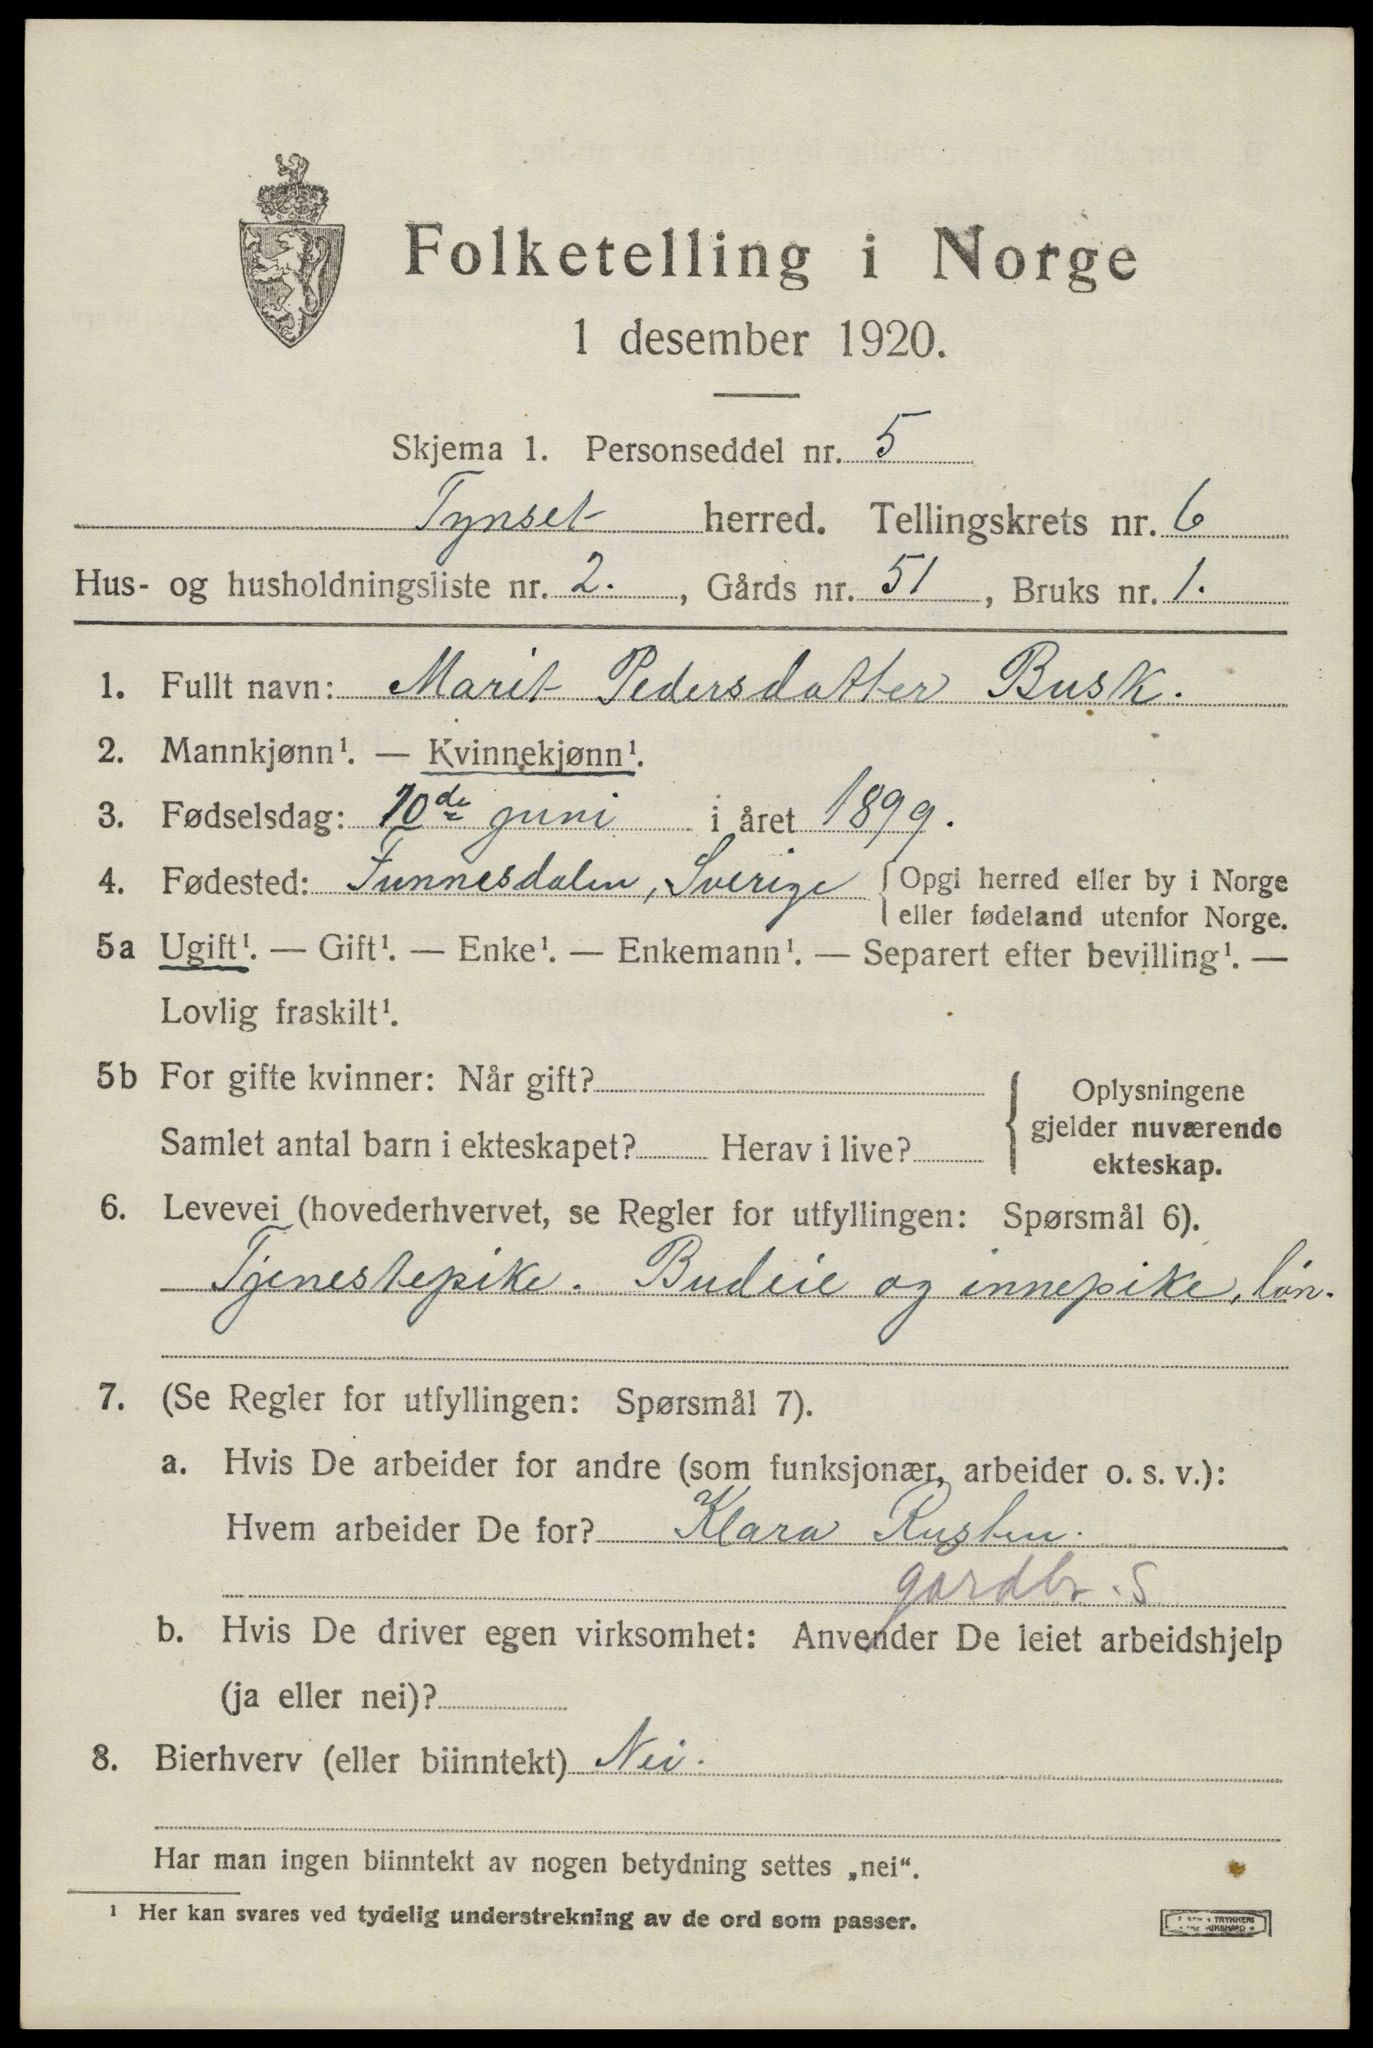 Folketelling i Norge
1 desember 1920.
Skjema 1. Personseddel nr. 5
Tynset herred. Tellingskrets nr. 6
Hus- og husholdningsliste nr. 2. , Gårds nr. 51 , Bruks nr. 1.
1. Fullt navn: Marit Pedersdatter Busk.
2. Mannkjønn¹. — Kvinnekjønn¹.
3. Fødselsdag: 10de juni i året 1899.
4. Fødested: Funnesdalen, Sverige {Opgi herred eller by i Norge
eller fødeland utenfor Norge.
5a Ugift¹. — Gift¹. — Enke¹. — Enkemann¹. — Separert efter bevilling¹. —
Lovlig fraskilt¹.
5b For gifte kvinner: Når gift?
Samlet antal barn i ekteskapet? Herav i live?
{ Oplysningene
gjelder nuværende
ekteskap.
6. Levevei (hovederhvervet, se Regler for utfyllingen: Spørsmål 6).
Tjenestepike. Budeie og innepike, løn.
7. (Se Regler for utfyllingen: Spørsmål 7).
a. Hvis De arbeider for andre (som funksjonær, arbeider o. s. v.):
Hvem arbeider De for? Klara Rusten.
gardbr. S
b. Hvis De driver egen virksomhet: Anvender De leiet arbeidshjelp
(ja eller nei)?
8. Bierhverv (eller biinntekt) Nei.
Har man ingen biinntekt av nogen betydning settes „nei“.
¹ Her kan svares ved tydelig understrekning av de ord som passer.
TRYKKERI